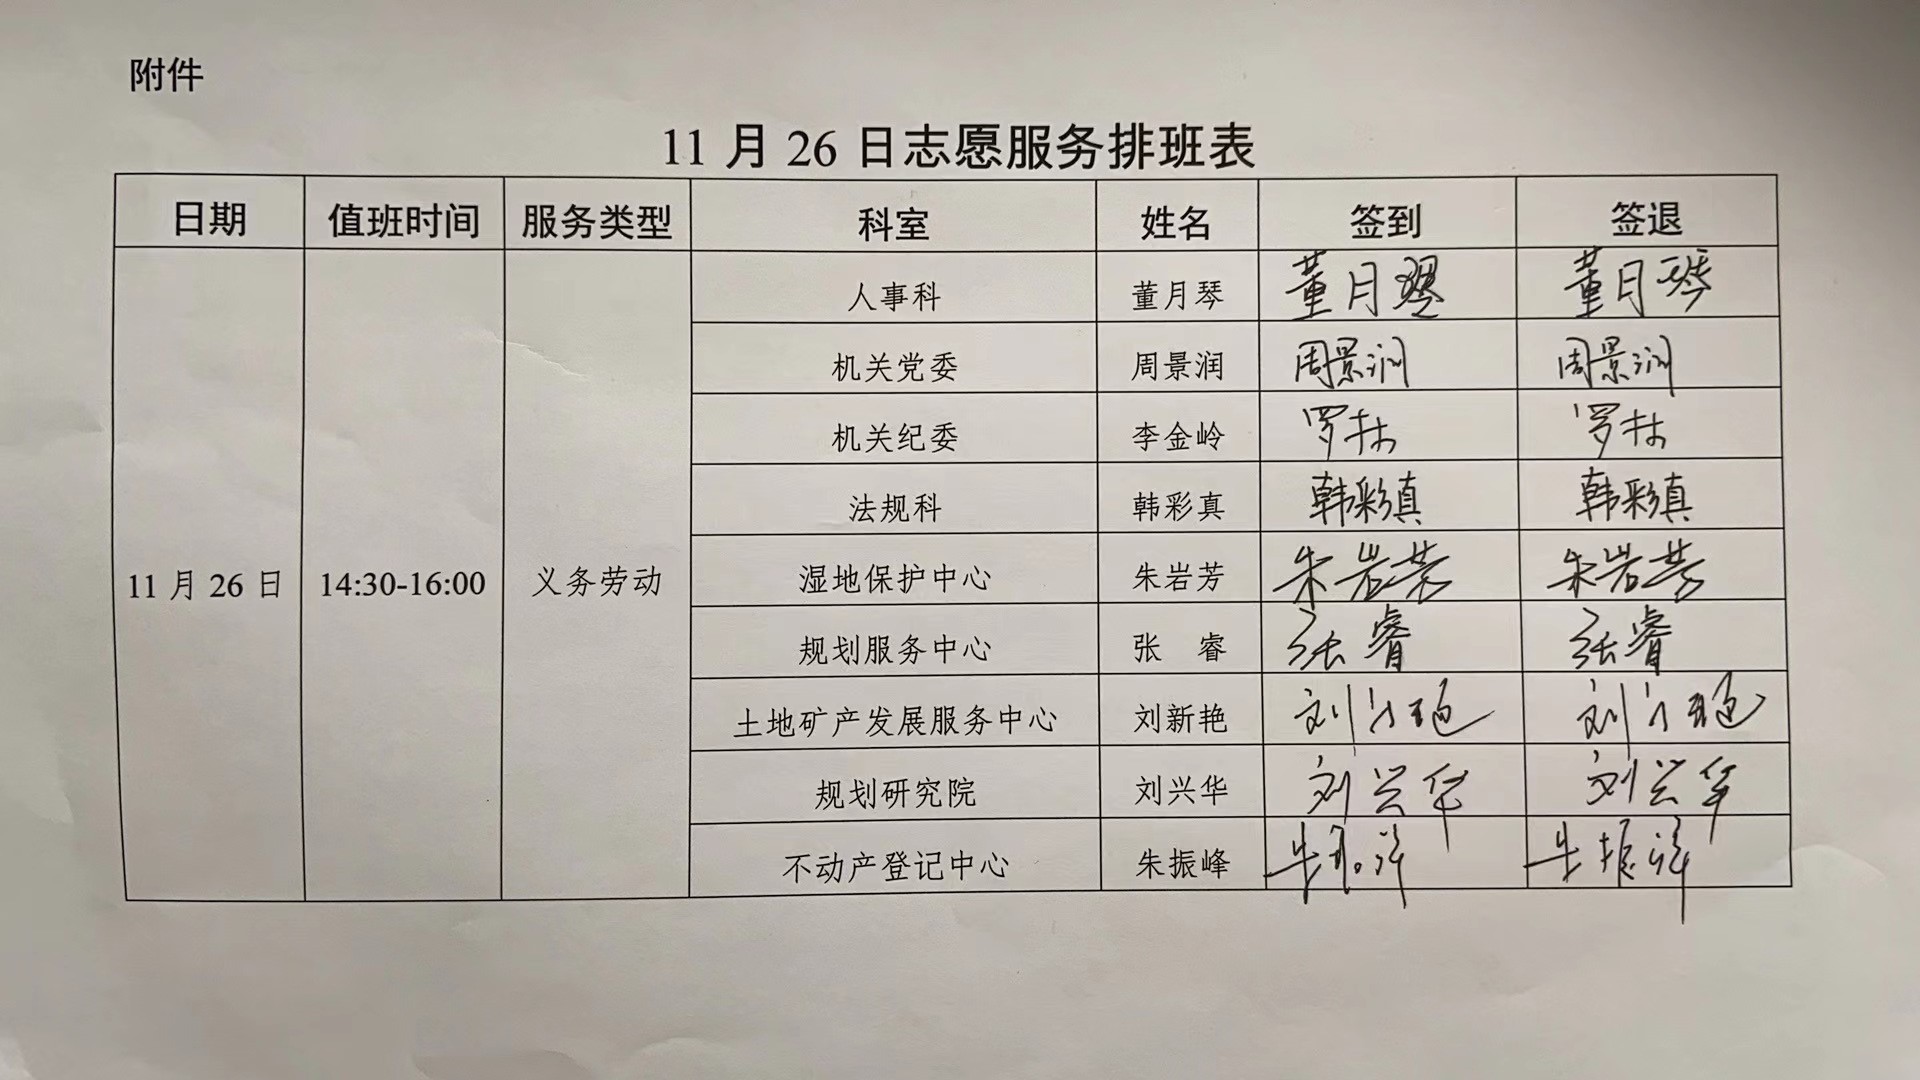 附件
11 月 26 日志愿服务排班表
日期 值班时间 服务类型 科室 姓名 签到 签退
人事科 董月琴 董月琴 董月琴
机关党委 周景润 周景润 周景润
机关纪委 李金岭 罗林 罗林
法规科 韩彩真 韩彩真 韩彩真
11 月 26 日 14:30-16:00 义务劳动 湿地保护中心 朱岩芳 朱岩芳 朱岩芳
规划服务中心 张 睿 张睿 张睿
土地矿产发展服务中心 刘新艳 刘新艳 刘新艳
规划研究院 刘兴华 刘兴华 刘兴华
不动产登记中心 朱振峰